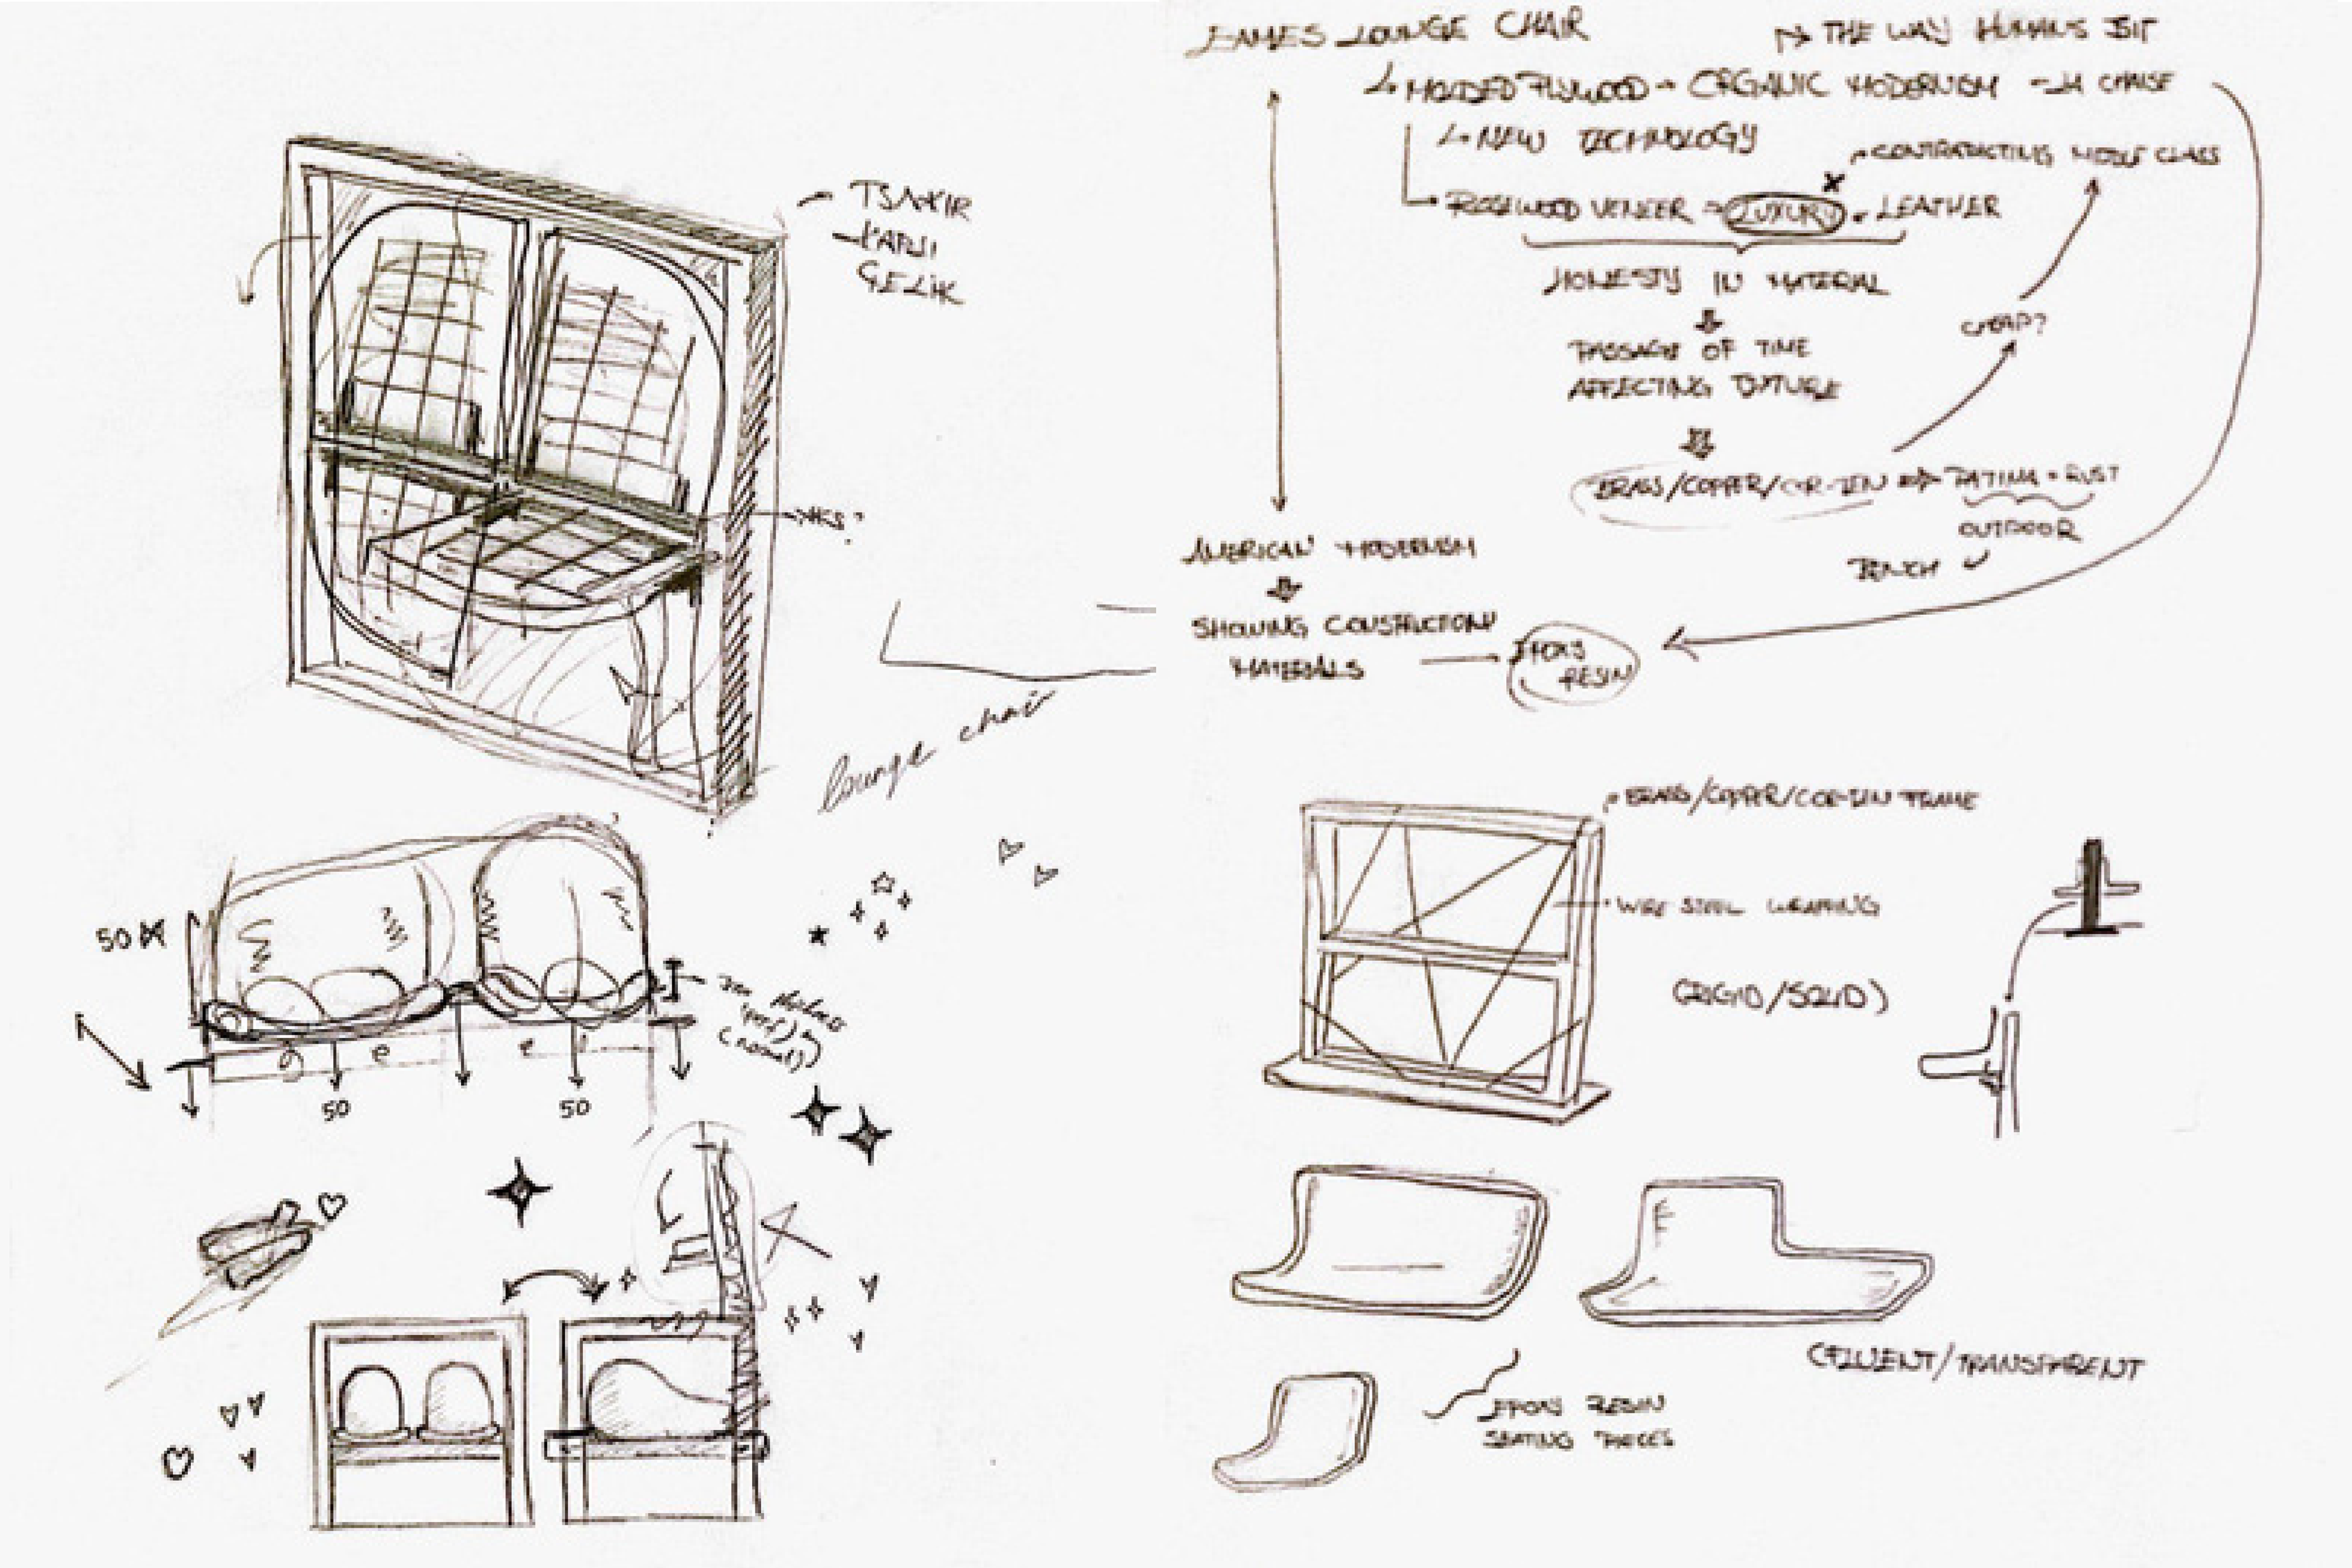 EAMES LOUNGE CHAIR
THE WAY HUMANS SIT
MOLDED PLYWOOD ORGANIC MODERNISM LA CHAISE
NEW TECHNOLOGY
CONTRADICTING MIDDLE CLASS
ROSEWOOD VENEER LUXURY LEATHER
HONESTY IN MATERIAL
CHEAP?
PASSAGE OF TIME
AFFECTING TEXTURE
BRASS/COPPER/COR-TEN PATINA RUST
OUTDOOR
BENCH
AMERICAN MODERNISM
SHOWING CONSTRUCTION
MATERIALS
EPOXY
RESIN
lounge chair
50
50
50
BRASS/COPPER/COR-TEN FRAME
WIRE STEEL WRAPPING
(RIGID/SOLID)
EPOXY RESIN
SEATING PIECES